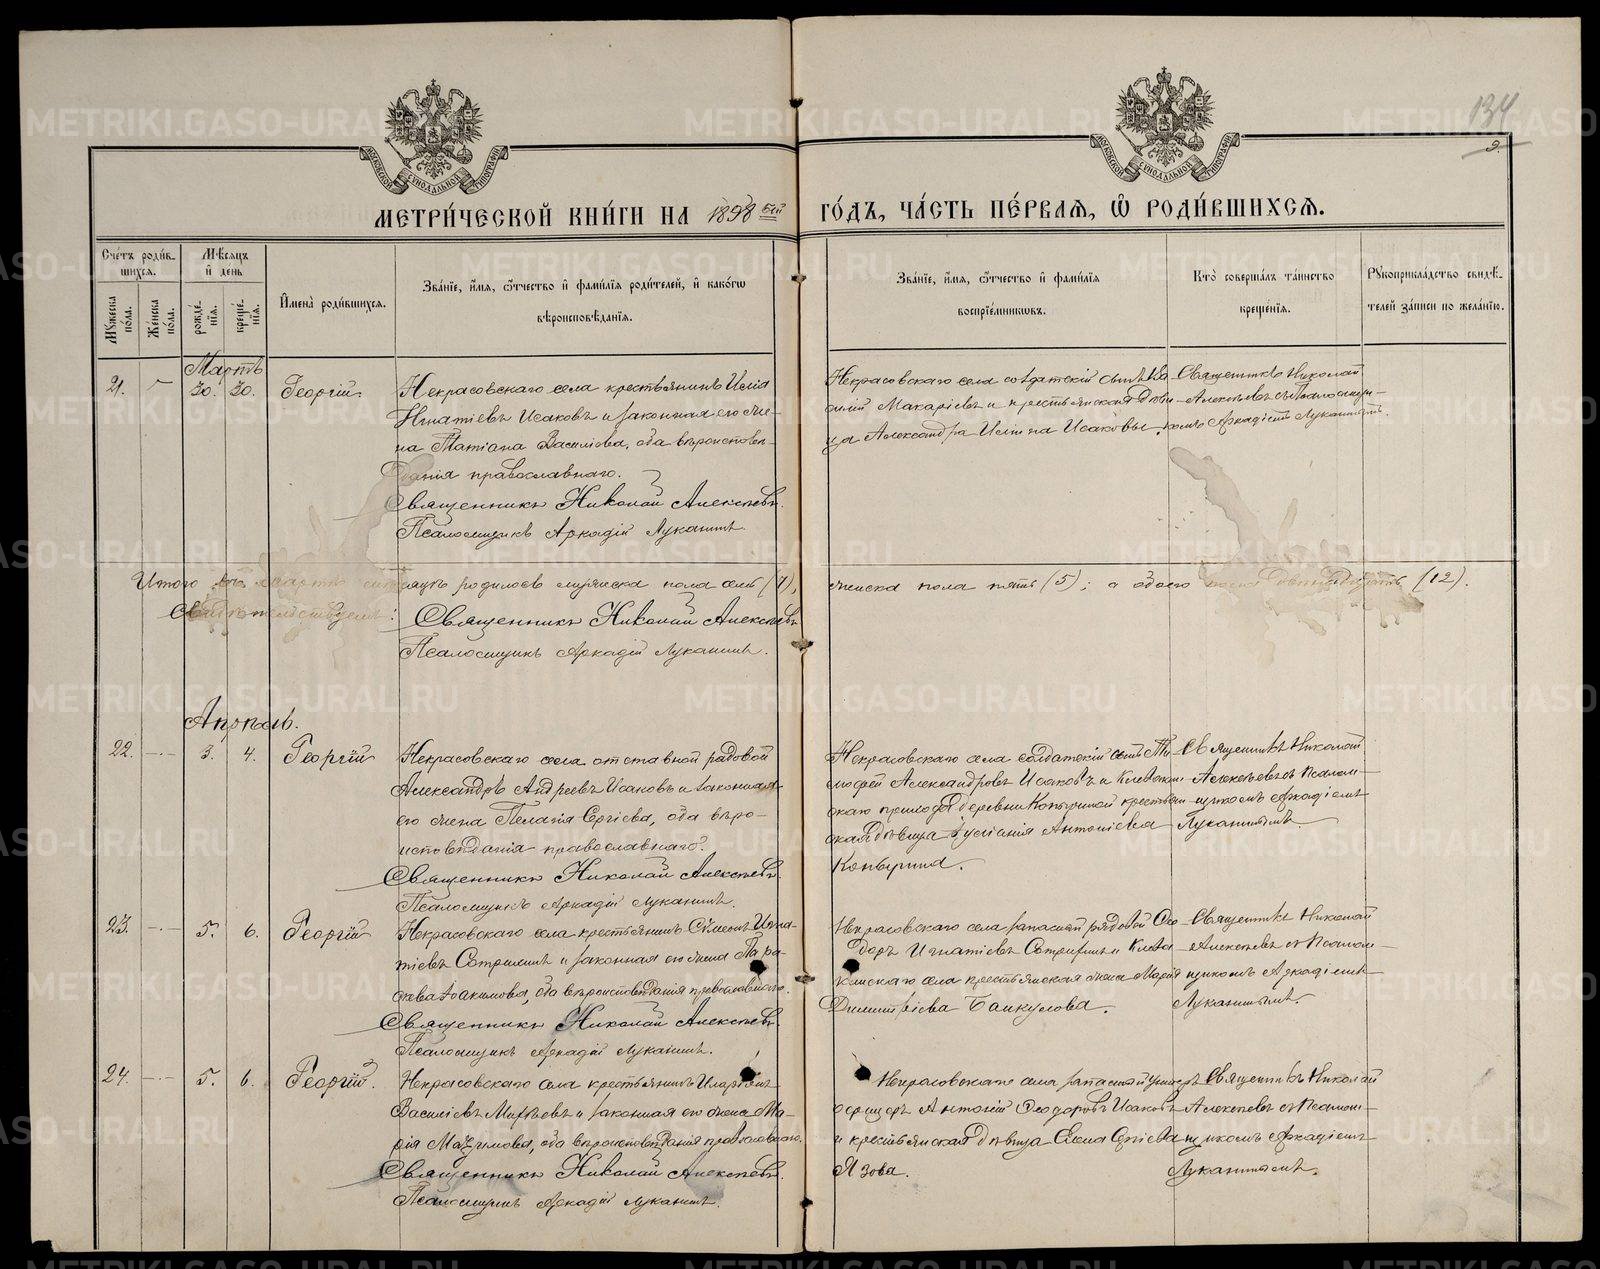 134
9.
МОСКОВСКОЙ СѴНОДАЛЬНОЙ ТИПОГРАФІИ
МОСКОВСКОЙ СѴНОДАЛЬНОЙ ТИПОГРАФІИ
МЕТРИ́ЧЕСКОЙ КНИ́ГИ НА 1898 ый ГО́ДЪ, ЧА́СТЬ ПЕ́РВАЯ, Ѡ҆ РОДИ́ВШИХСЯ.
Сче́тъ роди́вшихся.
Мѣ́сяцъ и҆ день
Мꙋ́жеска по́ла.
Же́нска по́ла.
рожде́нїя.
креще́нїя.
И҆мена̀ роди́вшихся.
Зва́нїе, и҆́мя, ѻ҆́тчество и҆ фами́лїя роди́телей, и҆ како́гѡ
вѣроисповѣ́данїя.
Зва́нїе, и҆́мя, ѻ҆́тчество и҆ фами́лїя
воспрїе́мникѡвъ.
Кто̀ соверша́лъ та́инство
креще́нїя.
Рꙋкоприкла́дство свидѣ́телей за́писи по жела́нїю.
Мартъ
21. 30. 30. Георгій.
Некрасовскаго села крестьянинъ Илія
Игнатіевъ Исаковъ и законная его же-
на Татіана Василіева, оба вѣроисповѣ-
данія православнаго.
Священникъ Николай Алексѣевъ.
Псаломщикъ Аркадій Луканинъ.
Некрасовскаго села солдатскій сынъ Ва-
силій Макаріевъ и крестьянская дѣви-
ца Александра Иліина Исаковы.
Священникъ Николай
Алексѣевъ съ Псаломщи-
комъ Аркадіемъ Луканинымъ.
Итого въ мартѣ мѣсяцѣ родилось мужеска пола семь (7), женска пола пять (5); а обоего пола двѣнадцать (12).
Свидѣтельствуемъ: Священникъ Николай Алексѣевъ
Псаломщикъ Аркадій Луканинъ.
Апрѣль.
22. 3. 4. Георгій
Некрасовскаго села отставной рядовой
Александръ Андреевъ Исаковъ и законная
его жена Пелагія Сергіева, оба вѣро-
исповѣданія православнаго.
Священникъ Николай Алексѣевъ.
Псаломщикъ Аркадій Луканинъ.
Некрасовскаго села солдатскій сынъ Ти-
мофей Александровъ Исаковъ и
скаго прихода деревни Копыриной крестьян-
ская дѣвица Антоніева
Копырина.
Священникъ Николай
Алексѣевъ съ Псалом-
щикомъ Аркадіемъ
Луканинымъ.
23. 5. 6. Георгій
Некрасовскаго села крестьянинъ Сѵмеонъ Игна-
тіевъ и законная его жена Па-ра-
скева Іоакимова, оба вѣроисповѣданія православнаго.
Священникъ Николай Алексѣевъ.
Псаломщикъ Аркадій Луканинъ.
Некрасовскаго села запасный рядовой Ѳео-
доръ Игнатіевъ и
села крестьянская жена Марія
Димитріева Банкулова.
Священникъ Николай
Алексѣевъ съ Псалом-
щикомъ Аркадіемъ
Луканинымъ.
24. 5. 6. Георгій.
Некрасовскаго села крестьянинъ Иларіонъ
Василіевъ и законная его жена Ма-
рія Маѯимова, оба вѣроисповѣданія православнаго.
Священникъ Николай Алексѣевъ.
Псаломщикъ Аркадій Луканинъ.
Некрасовскаго села запасный унтеръ
офицеръ Антоній Ѳеодоровъ Исаковъ
и крестьянская дѣвица Елена Сергіева
Язова.
Священникъ Николай
Алексѣевъ съ Псалом-
щикомъ Аркадіемъ
Луканинымъ.
METRIKI.GASO-URAL.RU